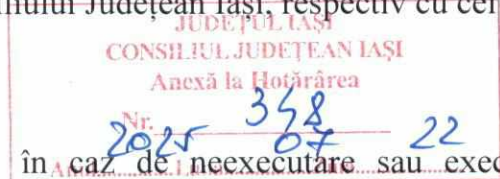 Județean Iași, respectiv cu
JUDEȚUL IAȘI
CONSILIUL JUDEȚEAN IAȘI
Anexă la Hotărârea
Nr. 348
2025 07 22
în caz de neexecutare sau